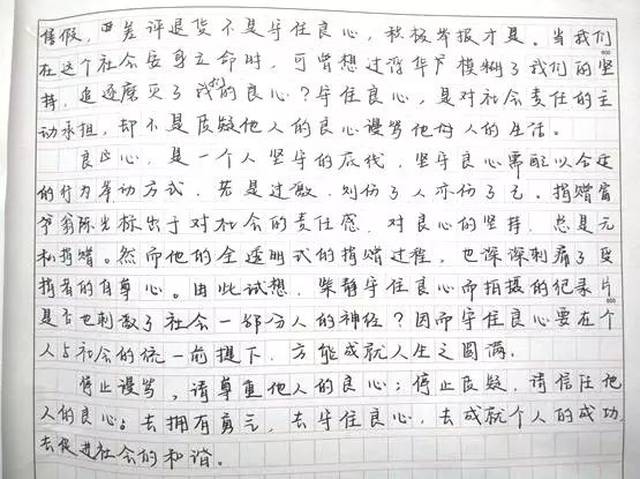 售假，因差评退货不是守住良心，积极举报才是。当我们
在这个社会安身立命时，可曾想过浮华声模糊了我们的坚
持，追逐磨灭了我们的良心？守住良心，是对社会责任的主
动承担，却不是质疑他人的良心谩骂他时人的生活。
良心，是一个人坚守的底线，坚守良心需配以合适
的行为举动方式，若是过激，则伤了人亦伤了己。捐赠富
爷翁陈光标出于对社会的责任感，对良心的坚持，总是无
私捐赠。然而他的全透明式的捐赠过程，也深深刺痛了受
捐者的自尊心。由此试想，柴静守住良心而拍摄的纪录片
是否也刺激了社会一部分人的神经？因而守住良心要在个
人与社会的统一前提下，方能成就人生之圆满。
停止谩骂，请尊重他人的良心；停止质疑，请信任他
人的良心。去拥有勇气，去守住良心，去成就个人的成功，
去促进社会的和谐。
600
800